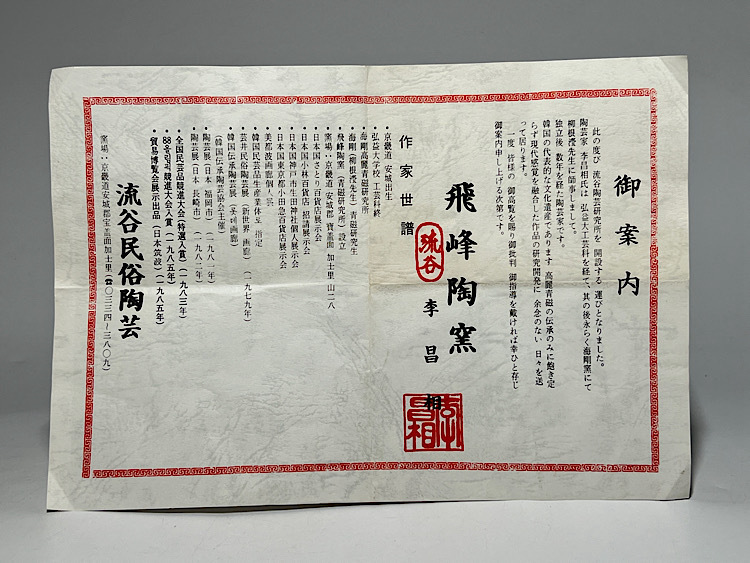 御案内
此の度び 流谷陶芸研究所を 開設する 運びとなりました。
陶芸家 李昌相氏は 弘益大工芸科を経て、其の後永らく海剛窯にて
柳根瀅先生に師事しまして、
独立後 数年を経た陶芸家です。
韓国の代表的な文化遺産であります 高麗青磁の伝承のみに飽き定
らず現代感覚を融合した作品の研究開発に 余念のない 日々を送
って居ります。
一度 皆様の 御高覧を賜り御批判 御指導を戴ければ幸ひと存じ
御案内申し上げる次第です。
飛峰陶窯
流谷
李昌相
李昌相
作家世譜
・京畿道 安城出生
・弘益大学校 工芸科終
・海剛高麗青磁研究所
・海剛(柳根瀅先生)青磁研究生
・飛峰陶窯(青磁研究所)設立
・窯場：京畿道 安城郡 寶盖面 加士里 山二八
・日本国さとり百貨店展示会
・日本国小林百貨店 招請展示会
・日本国神戸市生田神社個人展
・日本国東京都小田急百貨店展示会
・美都波画廊個人展
・韓国民芸品生産業体 指定
・芸井民俗陶芸展(新世界 画廊)(一九七九年)
・韓国伝承陶芸展(롯데画廊)
(韓国伝承陶芸協会主催)
・陶芸展(日本 福岡市)(一九八一年)
・陶芸展(日本 長崎市)(一九八二年)
・全国民芸品競進大会(特選入賞)(一九八三年)
・88올림픽競進大会入賞(一九八五年)
・貿易博覧会展示出品(日本筑波)(一九八五年)
流谷民俗陶芸
窯場：京畿道安城郡宝盖面加士里(☎〇三三四～三八〇九)